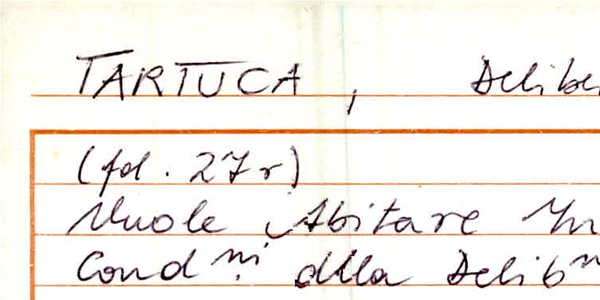 TARTUCA, Delibe
(fol. 27r)
Vuole Abitare In
Condni della Delibn